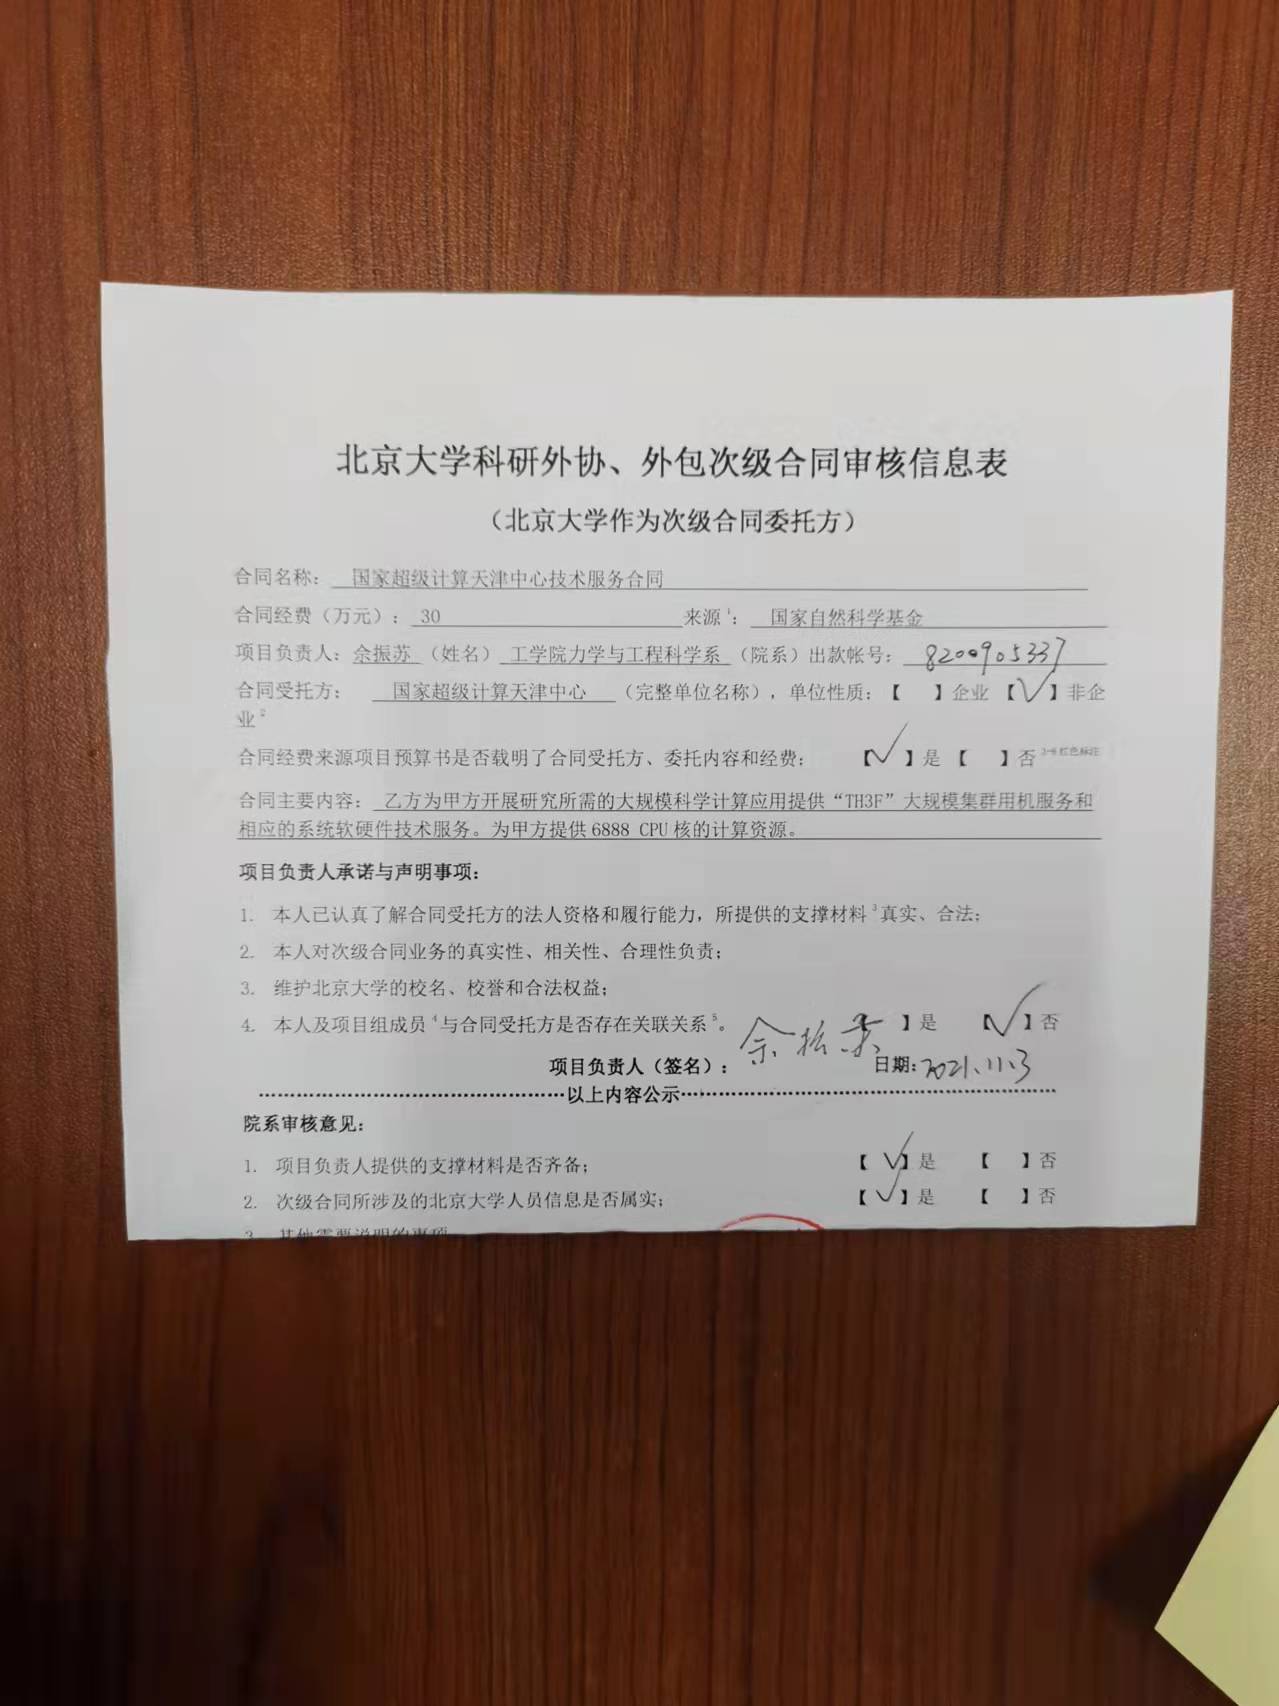 北京大学科研外协、外包次级合同审核信息表
（北京大学作为次级合同委托方）
合同名称： 国家超级计算天津中心技术服务合同
合同经费（万元）： 30 来源¹： 国家自然科学基金
项目负责人：佘振苏（姓名） 工学院力学与工程科学系（院系）出款帐号： 8200905337
合同受托方： 国家超级计算天津中心 （完整单位名称），单位性质：【 】企业 【√】非企
业²
合同经费来源项目预算书是否载明了合同受托方、委托内容和经费： 【√】是【 】否 3-6红色标注
合同主要内容： 乙方为甲方开展研究所需的大规模科学计算应用提供“TH3F”大规模集群用机服务和
相应的系统软硬件技术服务。为甲方提供 6888 CPU 核的计算资源。
项目负责人承诺与声明事项：
1. 本人已认真了解合同受托方的法人资格和履行能力，所提供的支撑材料³真实、合法；
2. 本人对次级合同业务的真实性、相关性、合理性负责；
3. 维护北京大学的校名、校誉和合法权益；
4. 本人及项目组成员⁴与合同受托方是否存在关联关系⁵。 】是 【√】否
项目负责人（签名）： 佘振苏 日期：2021.11.3
以上内容公示
院系审核意见：
1. 项目负责人提供的支撑材料是否齐备； 【√】是 【 】否
2. 次级合同所涉及的北京大学人员信息是否属实； 【√】是 【 】否
3. 其他需要说明的事项